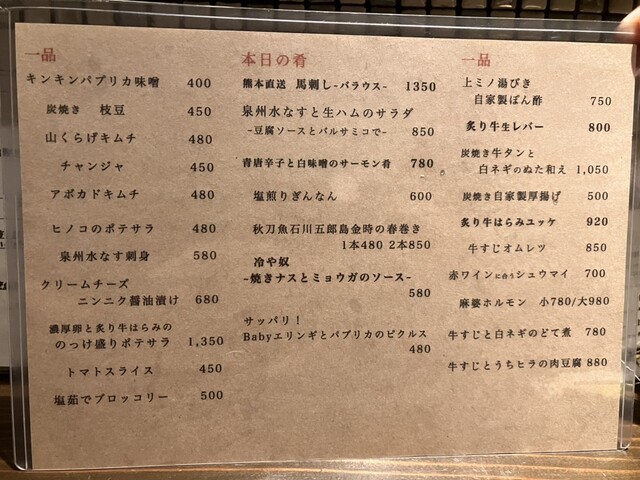 一品
キンキンパプリカ味噌 400
炭焼き 枝豆 450
山くらげキムチ 480
チャンジャ 450
アボカドキムチ 480
ヒノコのポテサラ 480
泉州水なす刺身 580
クリームチーズ
ニンニク醤油漬け 680
濃厚卵と炙り牛はらみの
のっけ盛りポテサラ 1,350
トマトスライス 450
塩茹でブロッコリー 500
本日の肴
熊本直送 馬刺し-バラウス- 1350
泉州水なすと生ハムのサラダ
-豆腐ソースとバルサミコで- 850
青唐辛子と白味噌のサーモン肴 780
塩煎りぎんなん 600
秋刀魚石川五郎島金時の春巻き
1本480 2本850
冷や奴
-焼きナスとミョウガのソース-
580
サッパリ！
Babyエリンギとパプリカのピクルス
480
一品
上ミノ湯びき
自家製ぽん酢 750
炙り牛生レバー 800
炭焼き牛タンと
白ネギのぬた和え 1,050
炭焼き自家製厚揚げ 500
炙り牛はらみユッケ 920
牛すじオムレツ 850
赤ワインに合うシュウマイ 700
麻婆ホルモン 小780/大980
牛すじと白ネギのどて煮 780
牛すじとうちヒラの肉豆腐 880